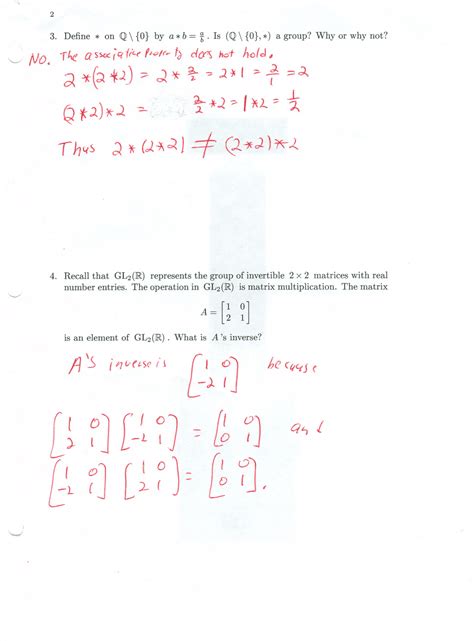 2
3. Define * on ℚ \ {0} by a * b = a/b. Is (ℚ \ {0}, *) a group? Why or why not?
No. The associative Property does not hold.
2 * (2 * 2) = 2 * 2/2 = 2 * 1 = 2/1 = 2
(2 * 2) * 2 = 2/2 * 2 = 1 * 2 = 1/2
Thus 2 * (2 * 2) ≠ (2 * 2) * 2
4. Recall that GL₂(ℝ) represents the group of invertible 2 × 2 matrices with real
number entries. The operation in GL₂(ℝ) is matrix multiplication. The matrix
A = [1 0; 2 1]
is an element of GL₂(ℝ). What is A's inverse?
A's inverse is [1 0; -2 1] because
[1 0; 2 1] [1 0; -2 1] = [1 0; 0 1] and
[1 0; -2 1] [1 0; 2 1] = [1 0; 0 1].